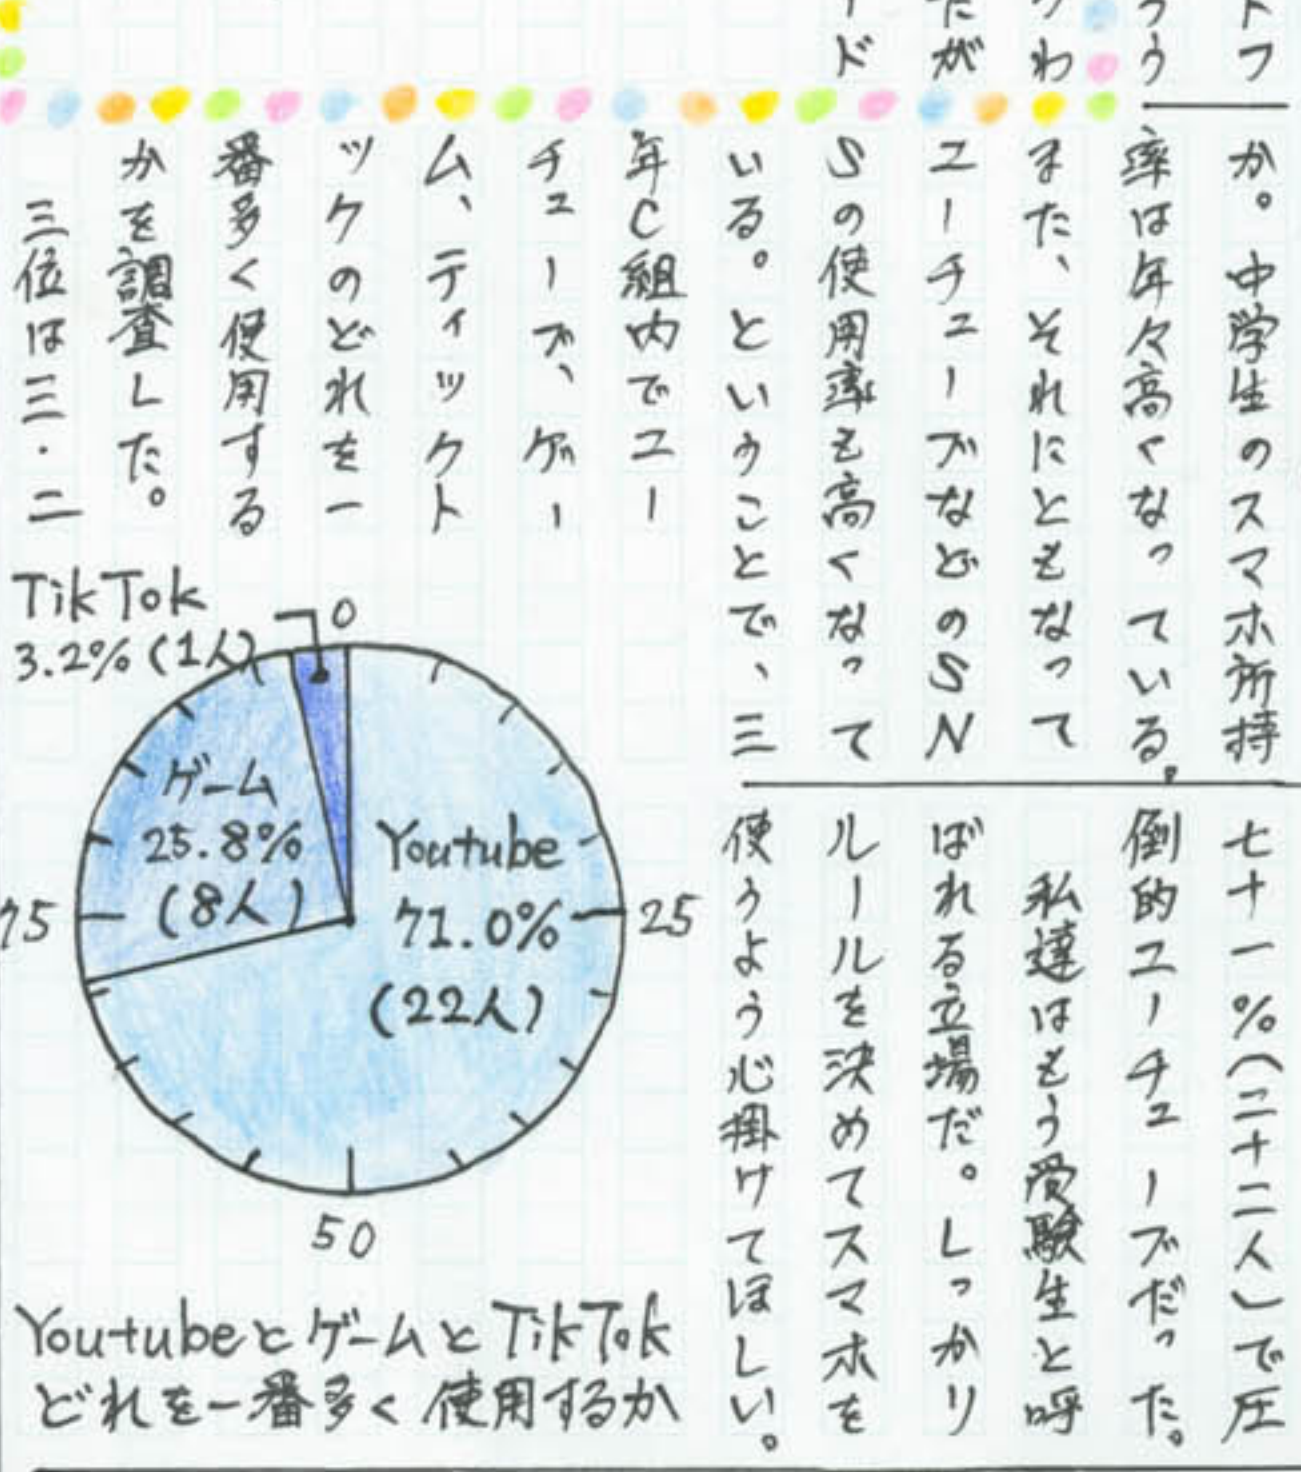 トフ
うう
わ
だが
ード
か。中学生のスマホ所持
率は年々高くなっている。
また、それにともなって
ユーチューブなどのSN
Sの使用率も高くなって
いる。ということで、三
年C組内でユー
チューブ、ゲー
ム、ティックト
ックのどれを一
番多く使用する
かを調査した。
三位は三・二
七十一%(二十二人)で圧
倒的ユーチューブだった。
私達はもう受験生と呼
ばれる立場だ。しっかり
ルールを決めてスマホを
使うよう心掛けてほしい。
TikTok
3.2%(1人)
0
ゲーム
25.8%
(8人)
Youtube
71.0%
(22人)
25
50
75
YoutubeとゲームとTikTok
どれを一番多く使用するか